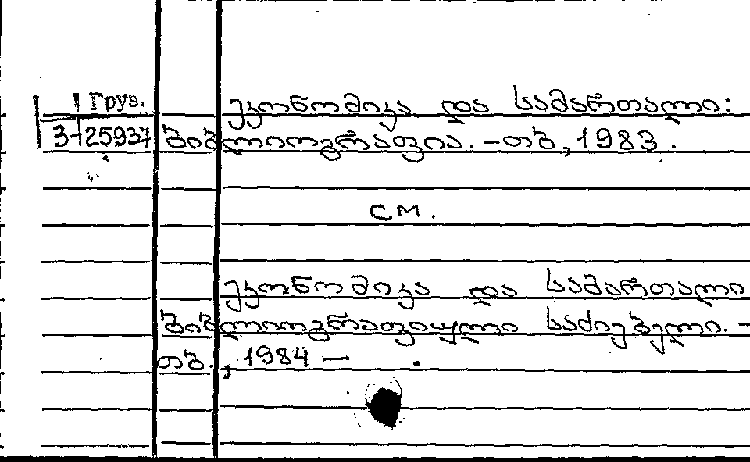 Груз.
ეკონომიკა და სამართალი:
3-25937 ბიბლიოგრაფია. – თბ., 1983.
см.
ეკონომიკა და სამართალი
ბიბლიოგრაფიული საძიებელი. –
თბ., 1984 — .